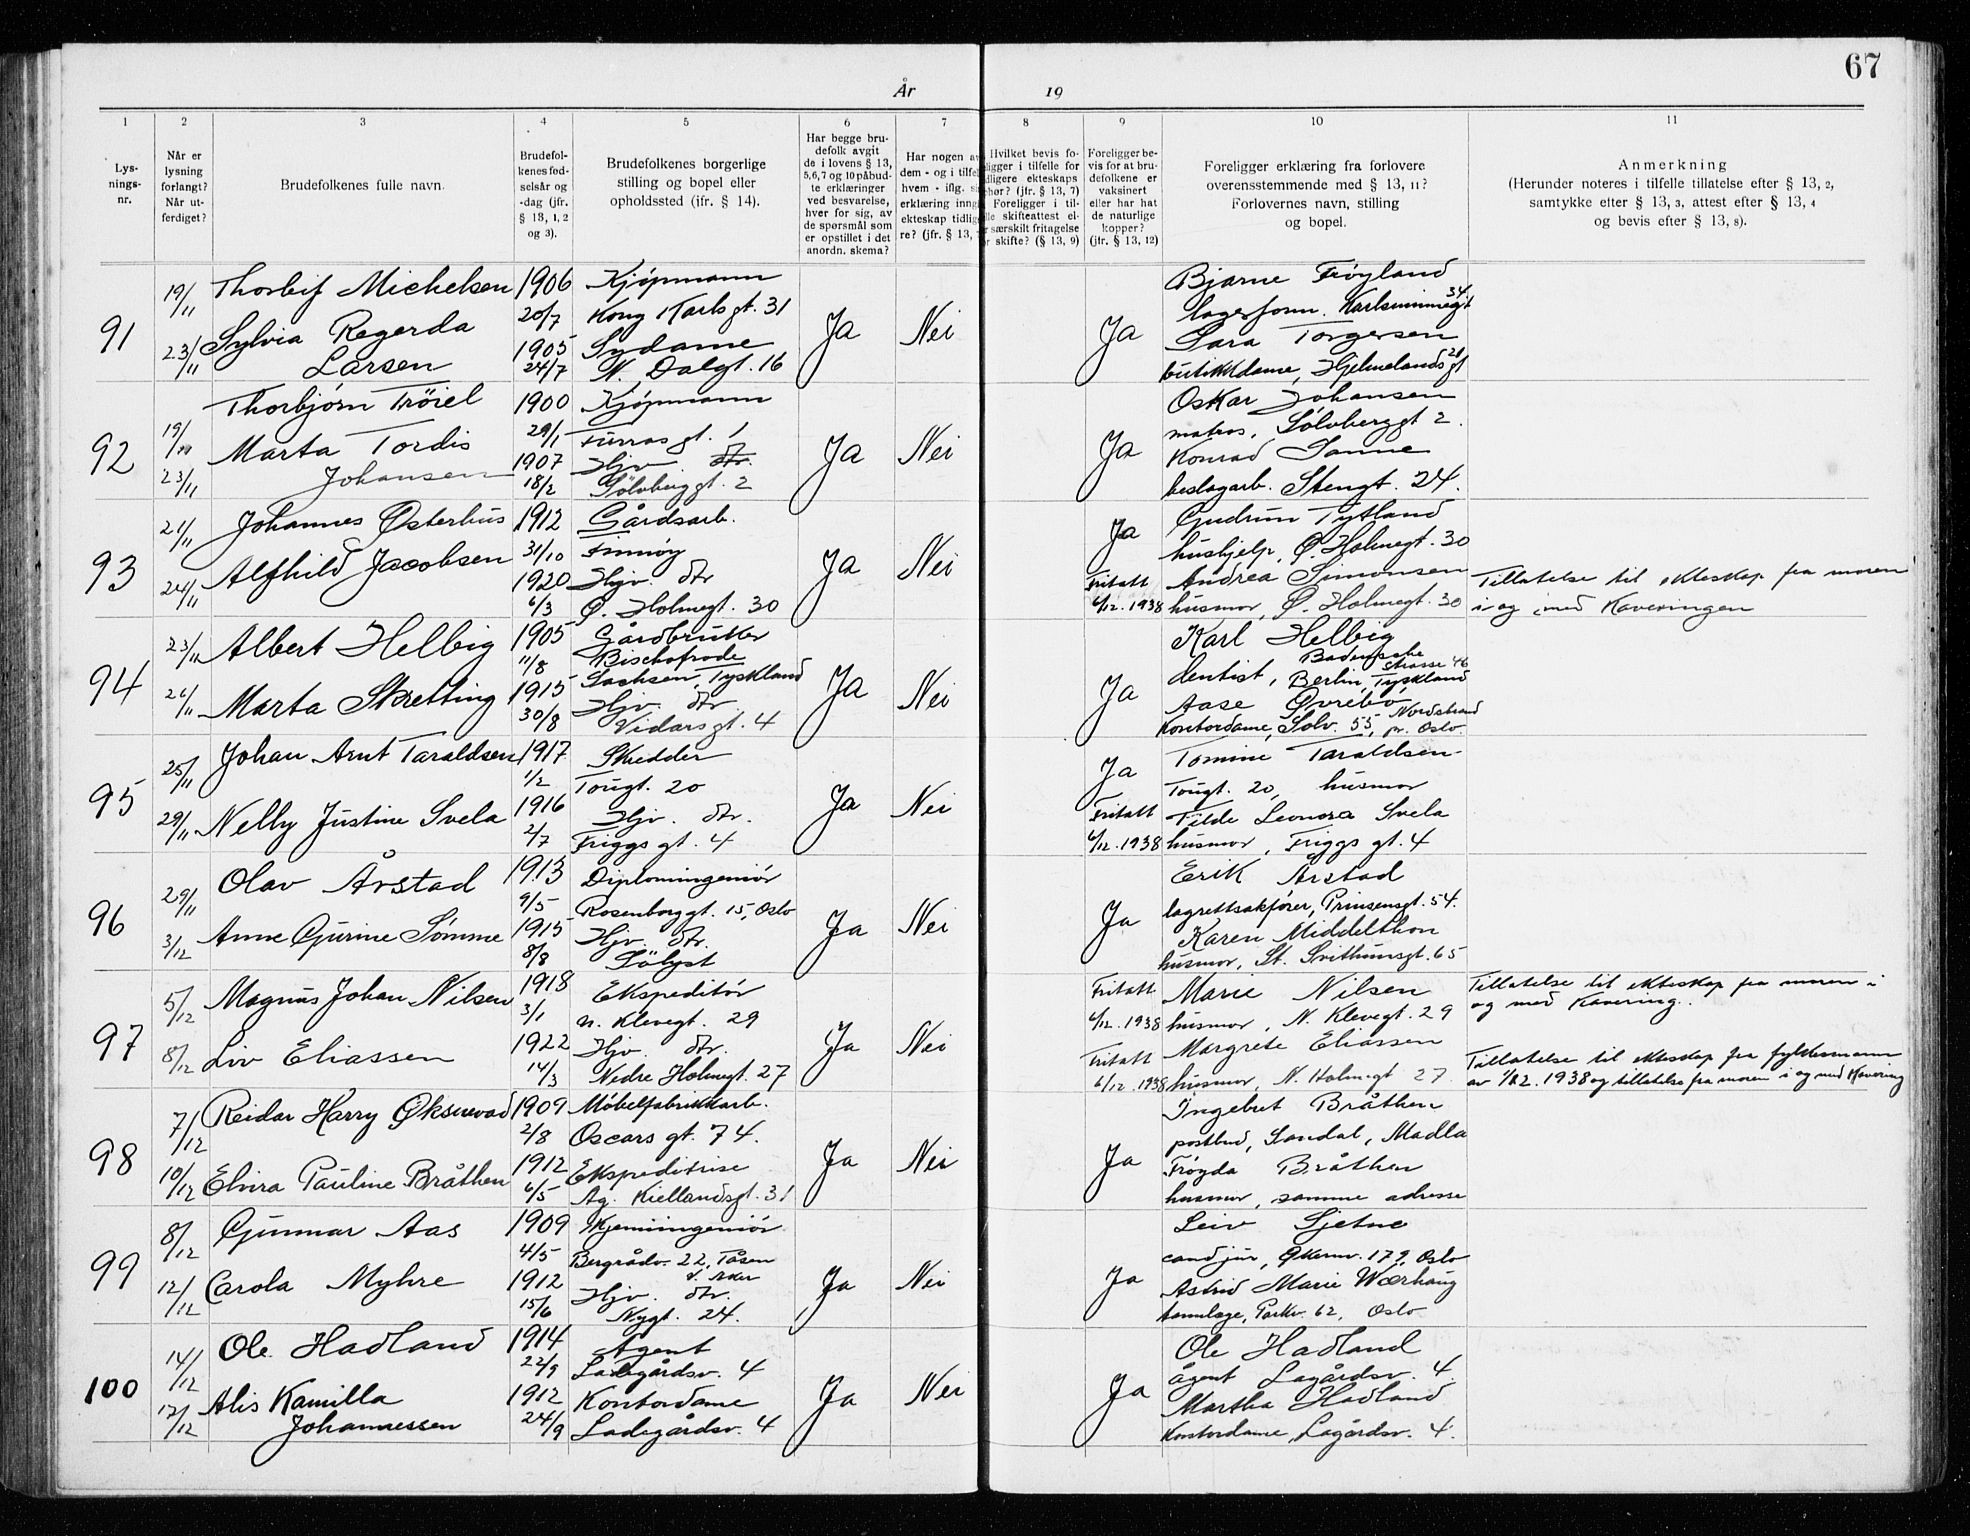 67
År 19
1 2 3 4 5 6 7 8 9 10 11
Lys-
nings-
nr.
Når er
lysning
forlangt?
Når ut-
ferdiget?
Brudefolkenes fulle navn.
Brudefol-
kenes fød-
selsår og
-dag (jfr.
§ 13, 1, 2
og 3).
Brudefolkenes borgerlige
stilling og bopel eller
opholdssted (jfr. § 14).
Har begge bru-
defolk avgit
de i lovens § 13,
5, 6, 7 og 10 påbud-
te erklæringer
ved besvarelse,
hver for sig, av
de spørsmål som
er opstillet i det
anordn. skema?
Har nogen av
dem - og i tilfel
hvem - iflg. si
erklæring inng
ekteskap tidlig
re? (jfr. § 13,
Hvilket bevis fo-
ligger i tilfelle for
dligere ekteskaps
hør? (jfr. § 13, 7)
Foreligger i til-
lle skifteattest el-
r særskilt fritagelse
or skifte? (§ 13, 9)
Foreligger be-
vis for at bru-
defolkene er
vaksinert
eller har hat
de naturlige
kopper?
(jfr. § 13, 12)
Foreligger erklæring fra forlovere
overensstemmende med § 13, 11?
Forlovernes navn, stilling
og bopel.
Anmerkning
(Herunder noteres i tilfelle tillatelse efter § 13, 2,
samtykke efter § 13, 3, attest efter § 13, 4
og bevis efter § 13, 8).
91
19/11
23/11
Thorleif Michelsen
Sylvia Regerda
Larsen
1906
20/7
1905
24/7
Kjøpmann
Kong Karls gt. 31
Sydame
N. Dalgt. 16
Ja
Nei
Ja
Bjarne Frøyland
lagerform. Karlsminnegt 34
Sara Torgersen
butikkdame, Hjelmelandsgt 21
92
19/11
23/11
Thorbjørn Tröiel
Marta Tordis
Johansen
1900
29/1
1907
18/2
Kjøpmann
Furrasgt. 1
Hjv. dtr.
Sölvberggt. 2
Ja
Nei
Ja
Oskar Johansen
matros, Sølvberggt 2.
Konrad Sanne
beslagarb. Stengt. 24.
93
21/11
24/11
Johannes Østerhus
Alfhild Jacobsen
1912
31/10
1920
6/3
Gårdsarb.
Finnøy
Hjv. dtr
Ø. Holmegt. 30
Ja
Nei
Ja
Fritatt
6/12. 1938
Gudrun Tytland
hushjelp, Ø. Holmegt. 30
Andrea Simonsen
husmor, Ø. Holmegt. 30
Tillatelse til ekteskap fra moren
i og med Kaveringen
94
23/11
26/11
Albert Helbig
Marta Skretting
1905
11/8
1915
30/8
Gårdbruker
Bischofrode
Sachsen, Tyskland
Hjv. dtr.
Vidarsgt. 4
Ja
Nei
Ja
Karl Helbig
dentist, Badensche
strasse 46
Berlin, Tyskland
Aase Øvrebö,
Kontordame, Solv. 55, Nordstrand
pr. Oslo
95
25/11
29/11
Johan Arnt Taraldsen
Nelly Justine Svela
1917
1/2
1916
2/7
Skredder
Tougt. 20
Hjv. dtr.
Friggs gt. 4
Ja
Nei
Ja
Fritatt
6/12. 1938
Tomine Taraldsen
Tougt. 20, husmor
Tilde Leonora Svela
husmor, Friggs gt. 4
96
29/11
3/12
Olav Årstad
Anne Gurine Sömme
1913
9/5
1915
8/8
Diplomingeniör
Rosenborggt. 15, Oslo
Hjv. dtr.
Sölyst
Ja
Nei
Ja
Erik Årstad
lagrettsakfører, Prinsensgt. 54.
Karen Middelthon
husmor, St. Svithunsgt. 65
97
5/12
8/12
Magnus Johan Nilsen
Liv Eliassen
1918
3/1
1922
14/3
Ekspeditör
N. Klevegt. 29
Hjv. dtr.
Nedre Holmegt. 27
Ja
Nei
Fritatt
6/12. 1938
Fritatt
6/12. 1938
Marie Nilsen
husmor, N. Klevegt. 29
Margrete Eliassen
husmor, N. Holmegt 27
Tillatelse til ekteskap fra moren i
og med Kavering.
Tillatelse til ekteskap fra fylkesmann
av 1/12. 1938 og tillatelse fra moren i og med Kavering
98
7/12
10/12
Reidar Harry Øksnevad
Elvira Pauline Bråthen
1909
2/8
1912
6/5
Møbelfabrikkarb.
Oscars gt. 74.
Ekspeditrise
Ag. Kiellandsgt. 31
Ja
Nei
Ja
Ingebret Bråthen
postbud, Sandal, Madla
Frøyda Bråthen
husmor, samme adresse
99
8/12
12/12
Gunnar Aas
Carola Myhre
1909
4/5
1912
15/6
Kjemiingeniör
Bergrådv. 22, Tåsen
V. Aker
Hjv. dtr.
Nygt. 24.
Ja
Nei
Ja
Leiv Sjetne
cand jur, Økernv. 179, Oslo
Astrid Marie Wærhaug
tannlege, Parkv. 62, Oslo
100
14/12
17/12
Ole Hadland
Alis Kamilla
Johannessen
1914
22/9
1912
24/9
Agent
Ladegårdsv. 4
Kontordame
Ladegårdsv. 4
Ja
Nei
Ja
Ole Hadland
Agent Lagårdsv. 4.
Martha Hadland
Kontordame, Lagårdsv. 4.